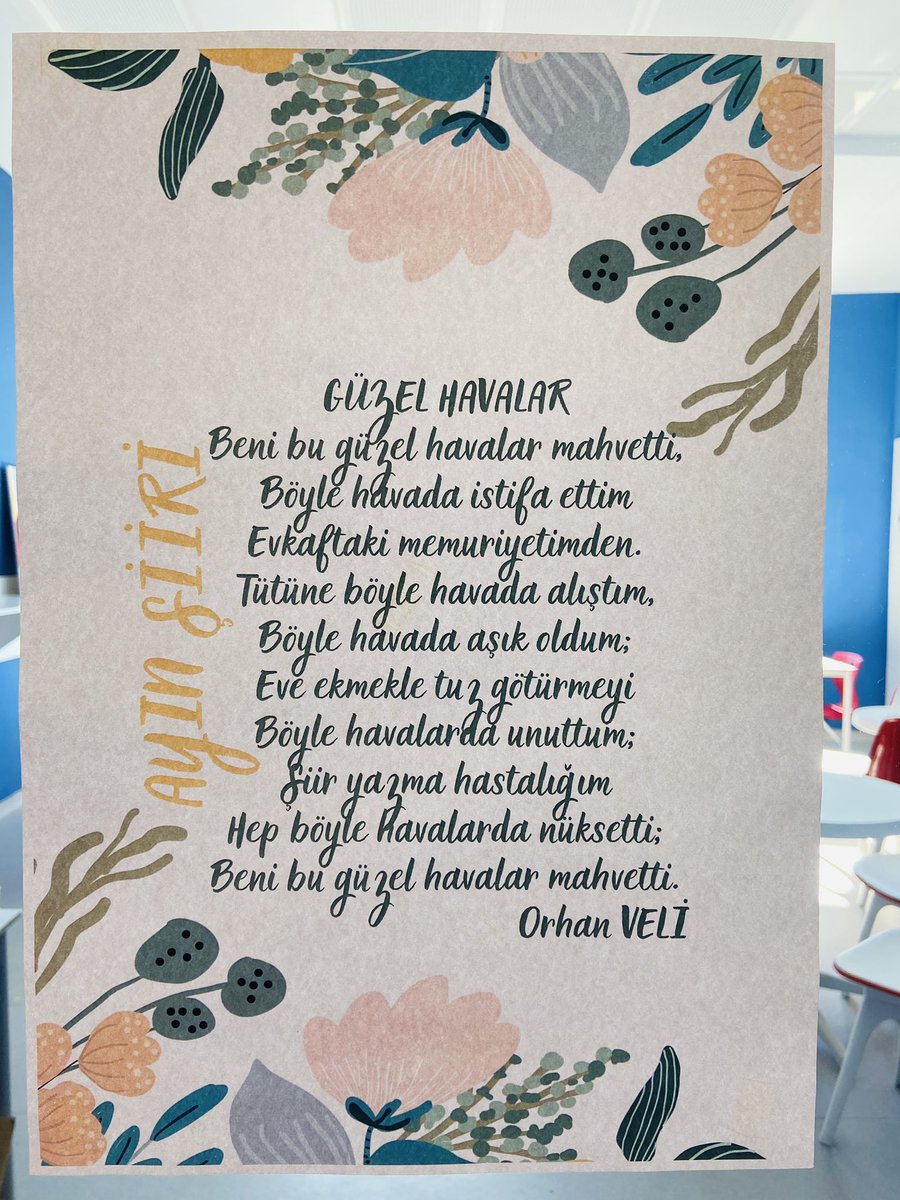 GÜZEL HAVALAR
Beni bu güzel havalar mahvetti,
Böyle havada istifa ettim
Evkaftaki memuriyetimden.
Tütüne böyle havada alıştım,
Böyle havada aşık oldum;
Eve ekmekle tuz götürmeyi
Böyle havalarda unuttum;
Şiir yazma hastalığım
Hep böyle havalarda nüksetti;
Beni bu güzel havalar mahvetti.
Orhan VELİ
AYIN ŞİİRİ